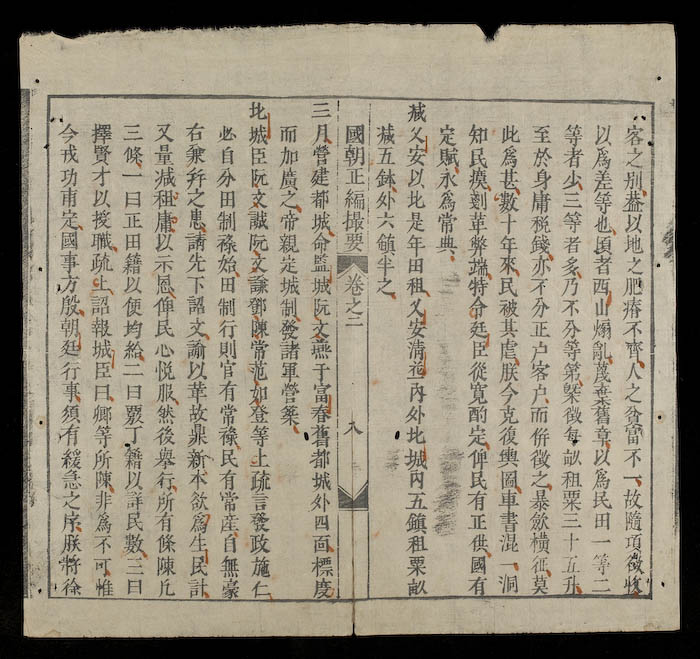 客之別盖以地之肥瘠不齊人之貧富不一故隨項徵收
以爲差等也頃者西山煽亂蔑棄舊章以爲民田一等二
等者少三等者多乃不分等第槩徵每畝租粟三十五升
至於身庸税錢亦不分正户客户而併徵之暴斂橫征莫
此爲甚數十年來民被其虐朕今克復輿圖車書混一洞
知民瘼剗革弊端特令廷臣從寬酌定俾民有正供國有
定賦永爲常典
減乂安以北是年田租乂安清花内外北城内五鎮租粟畝
減五鉢外六鎮半之
國朝正編撮要 卷之二 八
三月營建都城命監城阮文燕于富春舊都城外四面標度
而加廣之帝親定城制發諸軍營築
北城臣阮文誠阮文謙鄧陳常范如登等上疏言發政施仁
必自分田制祿始田制行則官有常祿民有常産自無豪
右兼并之患請先下詔文諭以革故鼎新本欲爲生民計
又量減租庸以示恩俾民心悦服然後舉行所有條陳凡
三條一曰正田籍以便均給二曰覈丁籍以詳民數三曰
擇賢才以授職疏上詔報城臣曰卿等所陳非爲不可惟
今戎功甫定國事方殷朝廷行事須有緩急之序朕將徐